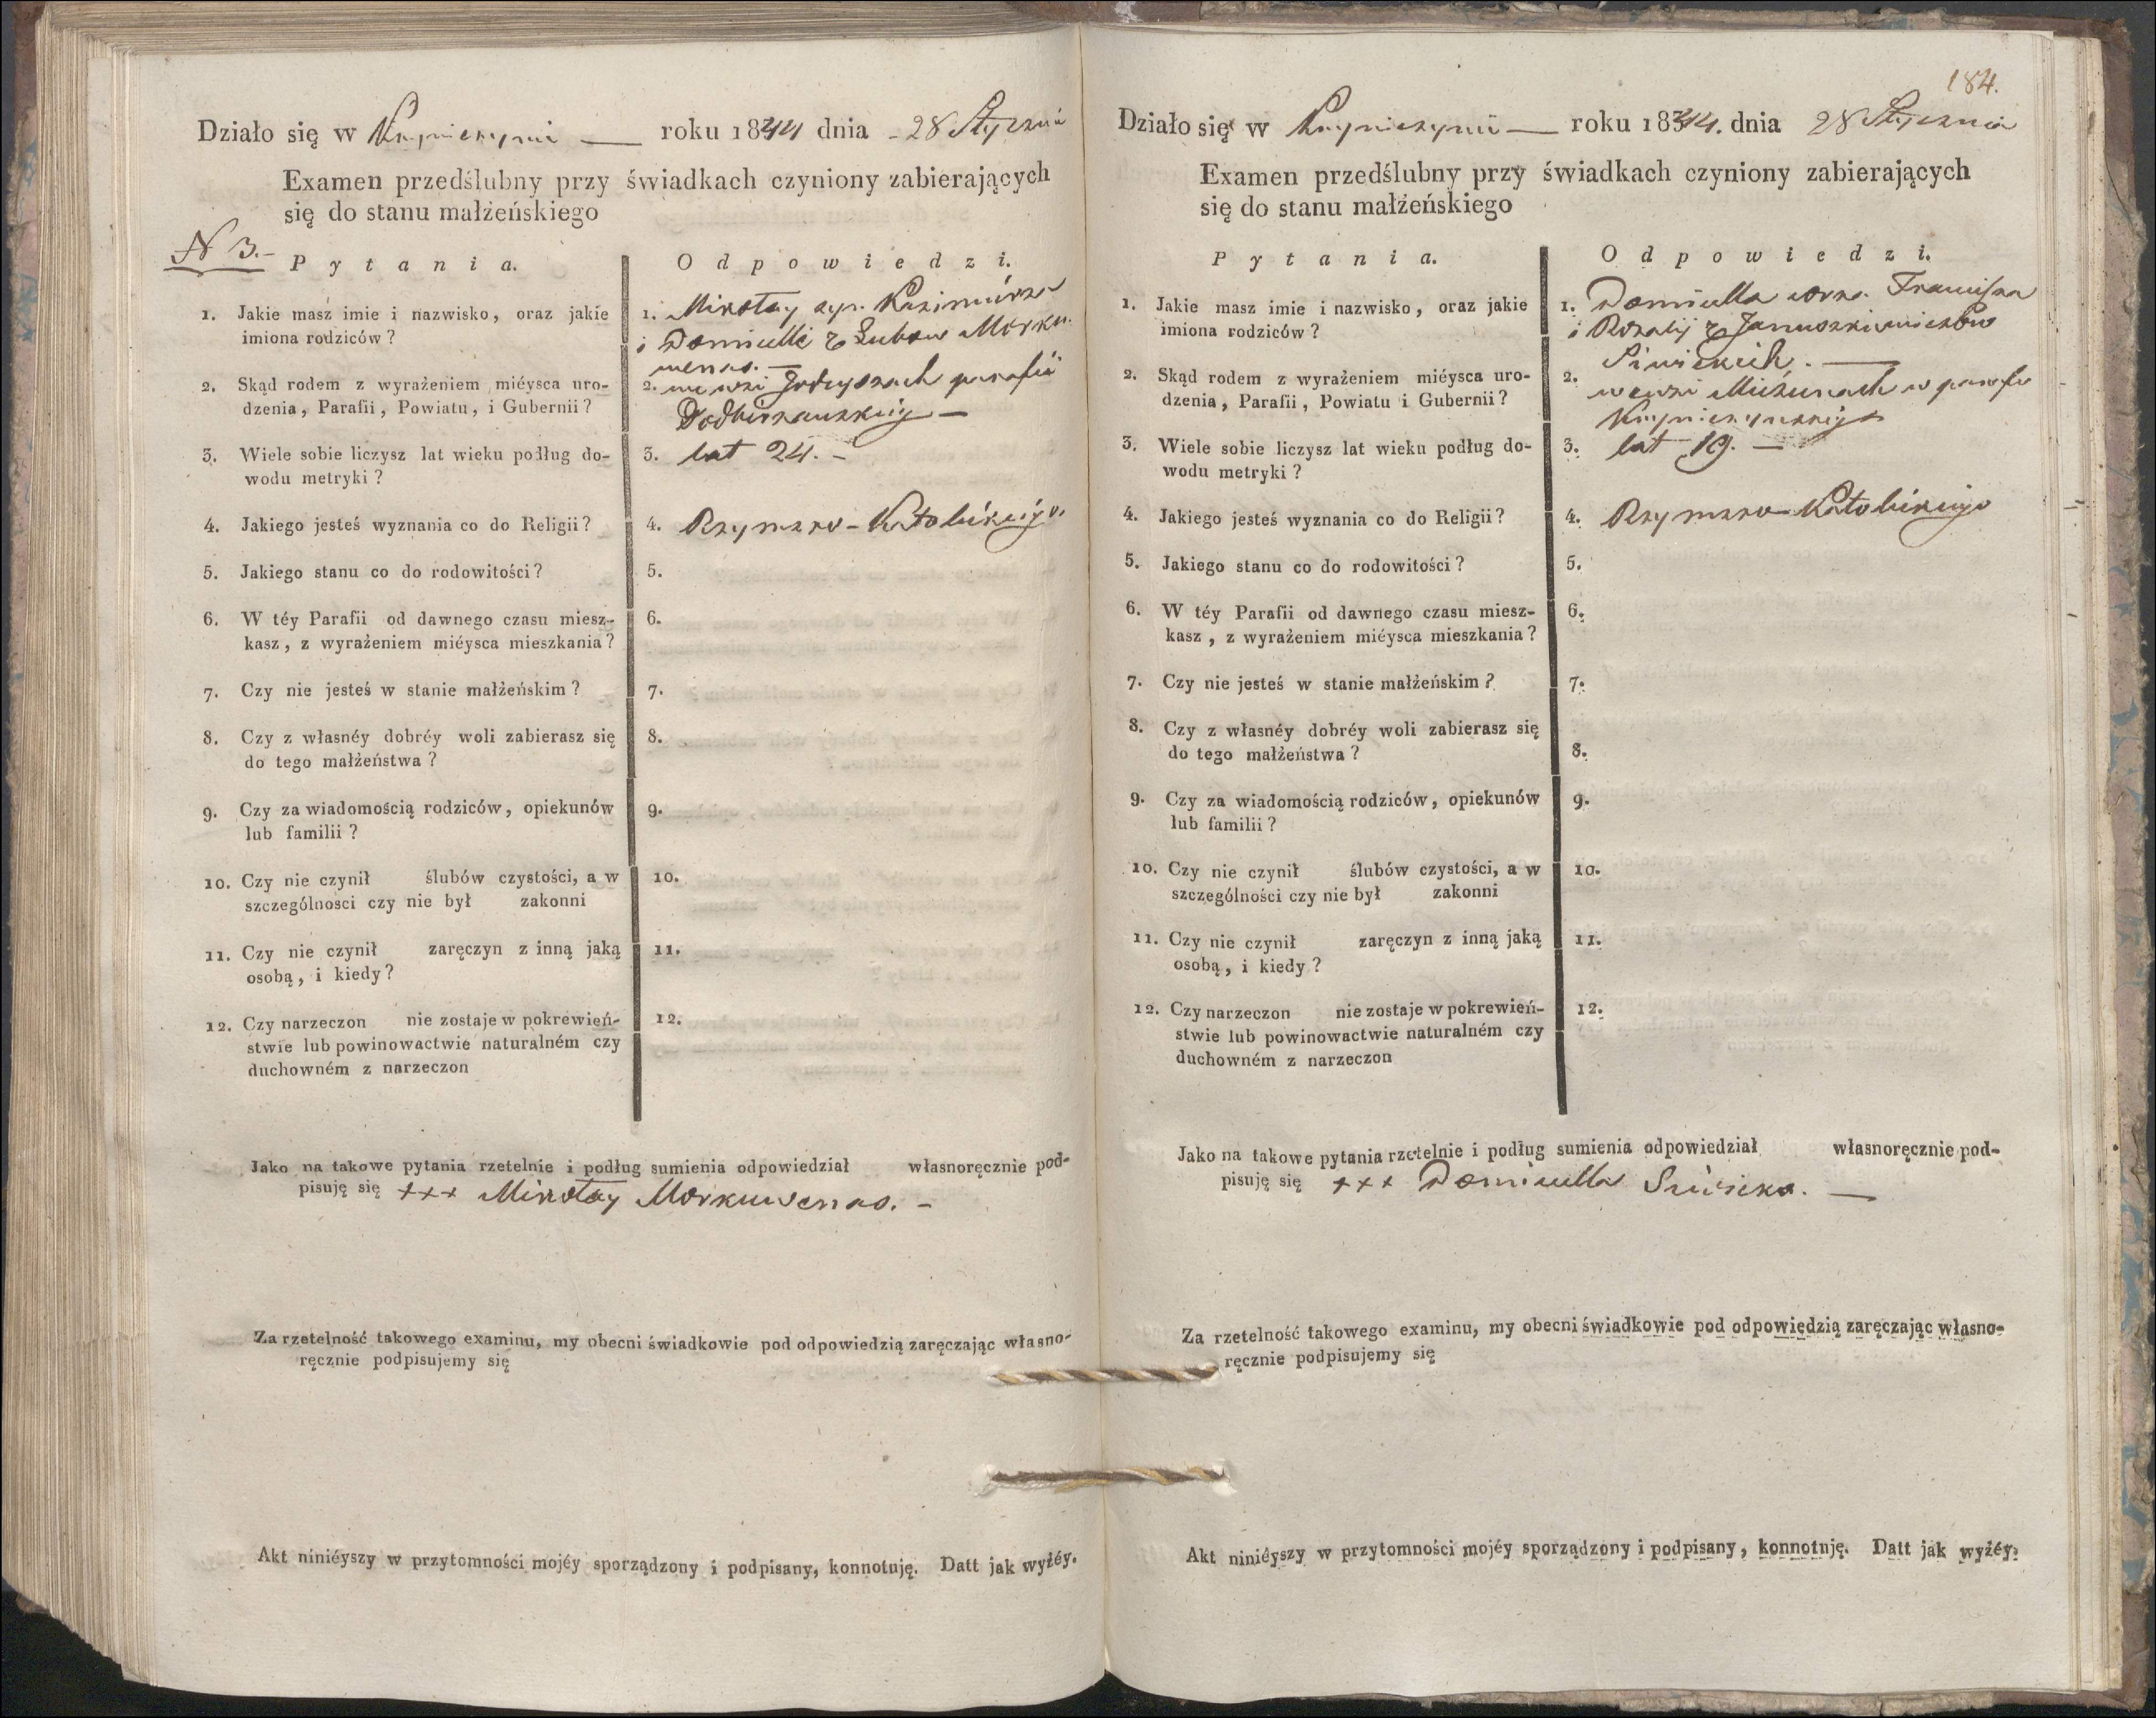 Działo się w Kryniczynie — roku 1844 dnia - 28 Stycznia
Examen przedślubny przy świadkach czyniony zabierających
się do stanu małżeńskiego
N 3.-
Pytania.
Odpowiedzi.
1. Jakie masz imie i nazwisko, oraz jakie
imiona rodziców?
1. Mikołay syn Kazimierza
i Domicelli z
2. Skąd rodem z wyrażeniem miéysca uro-
dzenia, Parafii, Powiatu, i Gubernii?
2. we wsi parafii
3. Wiele sobie liczysz lat wieku podług do-
wodu metryki?
3. lat 24. -
4. Jakiego jesteś wyznania co do Religii?
4. Rzymsko-Katolickiego
5. Jakiego stanu co do rodowitości?
5.
6. W téy Parafii od dawnego czasu miesz-
kasz, z wyrażeniem miéysca mieszkania?
6.
7. Czy nie jesteś w stanie małżeńskim?
7.
8. Czy z własnéy dobréy woli zabierasz się
do tego małżeństwa?
8.
9. Czy za wiadomością rodziców, opiekunów
lub familii?
9.
10. Czy nie czynił ślubów czystości, a w
szczególnosci czy nie był zakonni
10.
11. Czy nie czynił zaręczyn z inną jaką
osobą, i kiedy?
11.
12. Czy narzeczon nie zostaje w pokrewień-
stwie lub powinowactwie naturalném czy
duchowném z narzeczon
12.
Jako na takowe pytania rzetelnie i podług sumienia odpowiedział własnoręcznie pod-
pisuję się +++ Mikołay Morkuwenas. -
Za rzetelność takowego examinu, my obecni świadkowie pod odpowiedzią zaręczając własno-
ręcznie podpisujemy się
Akt niniéyszy w przytomności mojéy sporządzony i podpisany, konnotuję. Datt jak wyżéy.
184.
Działo się w Kryniczynie — roku 1844. dnia 28 Stycznia
Examen przedślubny przy świadkach czyniony zabierających
się do stanu małżeńskiego
Pytania.
Odpowiedzi.
1. Jakie masz imie i nazwisko, oraz jakie
imiona rodziców?
1. Domicella córka Franciszka
i Rozalij z Januszkiewiczów
2. Skąd rodem z wyrażeniem miéysca uro-
dzenia, Parafii, Powiatu i Gubernii?
2. we wsi w parafii
3. Wiele sobie liczysz lat wieku podług do-
wodu metryki?
3. lat 19. —
4. Jakiego jesteś wyznania co do Religii?
4. Rzymsko-Katolickiego
5. Jakiego stanu co do rodowitości?
5.
6. W téy Parafii od dawnego czasu miesz-
kasz, z wyrażeniem miéysca mieszkania?
6.
7. Czy nie jesteś w stanie małżeńskim?
7.
8. Czy z własnéy dobréy woli zabierasz się
do tego małżeństwa?
8.
9. Czy za wiadomością rodziców, opiekunów
lub familii?
9.
10. Czy nie czynił ślubów czystości, a w
szczególności czy nie był zakonni
10.
11. Czy nie czynił zaręczyn z inną jaką
osobą, i kiedy?
11.
12. Czy narzeczon nie zostaje w pokrewień-
stwie lub powinowactwie naturalném czy
duchowném z narzeczon
12.
Jako na takowe pytania rzetelnie i podług sumienia odpowiedział własnoręcznie pod-
pisuję się +++ Domicella
Za rzetelność takowego examinu, my obecni świadkowie pod odpowiędzią zaręczając własno-
ręcznie podpisujemy się
Akt niniéyszy w przytomności mojéy sporządzony i podpisany, konnotuję. Datt jak wyżéy.